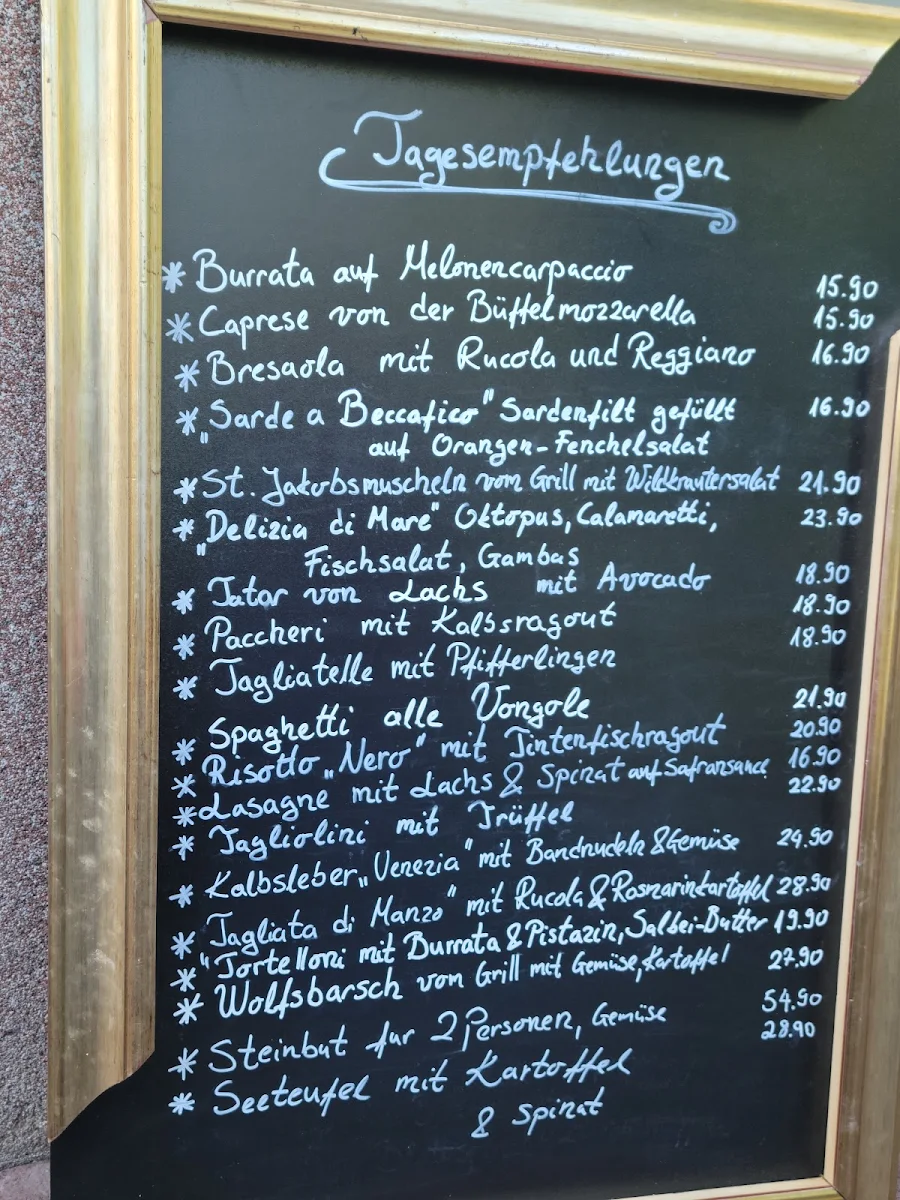 Tagesempfehlungen
* Burrata auf Melonencarpaccio 15.90
* Caprese von der Büffelmozzarella 15.90
* Bresaola mit Rucola und Reggiano 16.90
* „Sarde a Beccafico" Sardenfilt gefüllt 16.90
auf Orangen-Fenchelsalat
* St. Jakobsmuscheln vom Grill mit Wildkräutersalat 21.90
* „Delizia di Mare" Oktopus, Calamaretti, 23.90
Fischsalat, Gambas
* Tatar von Lachs mit Avocado 18.90
* Paccheri mit Kalbsragout 18.90
* Tagliatelle mit Pfifferlingen 18.90
* Spaghetti alle Vongole 21.90
* Risotto „Nero" mit Tintenfischragout 20.90
* Lasagne mit Lachs & Spinat auf Safransauce 16.90
* Tagliolini mit Trüffel 22.90
* Kalbsleber „Venezia" mit Bandnudeln & Gemüse 24.90
* Tagliata di Manzo" mit Rucola & Rosmarinkartoffel 28.90
* "Tortelloni mit Burrata & Pistazin, Salbei-Butter 19.90
* Wolfsbarsch von Grill mit Gemüse, Kartoffel 27.90
* Steinbut für 2 Personen, Gemüse 54.90
* Seeteufel mit Kartoffel 28.90
& Spinat